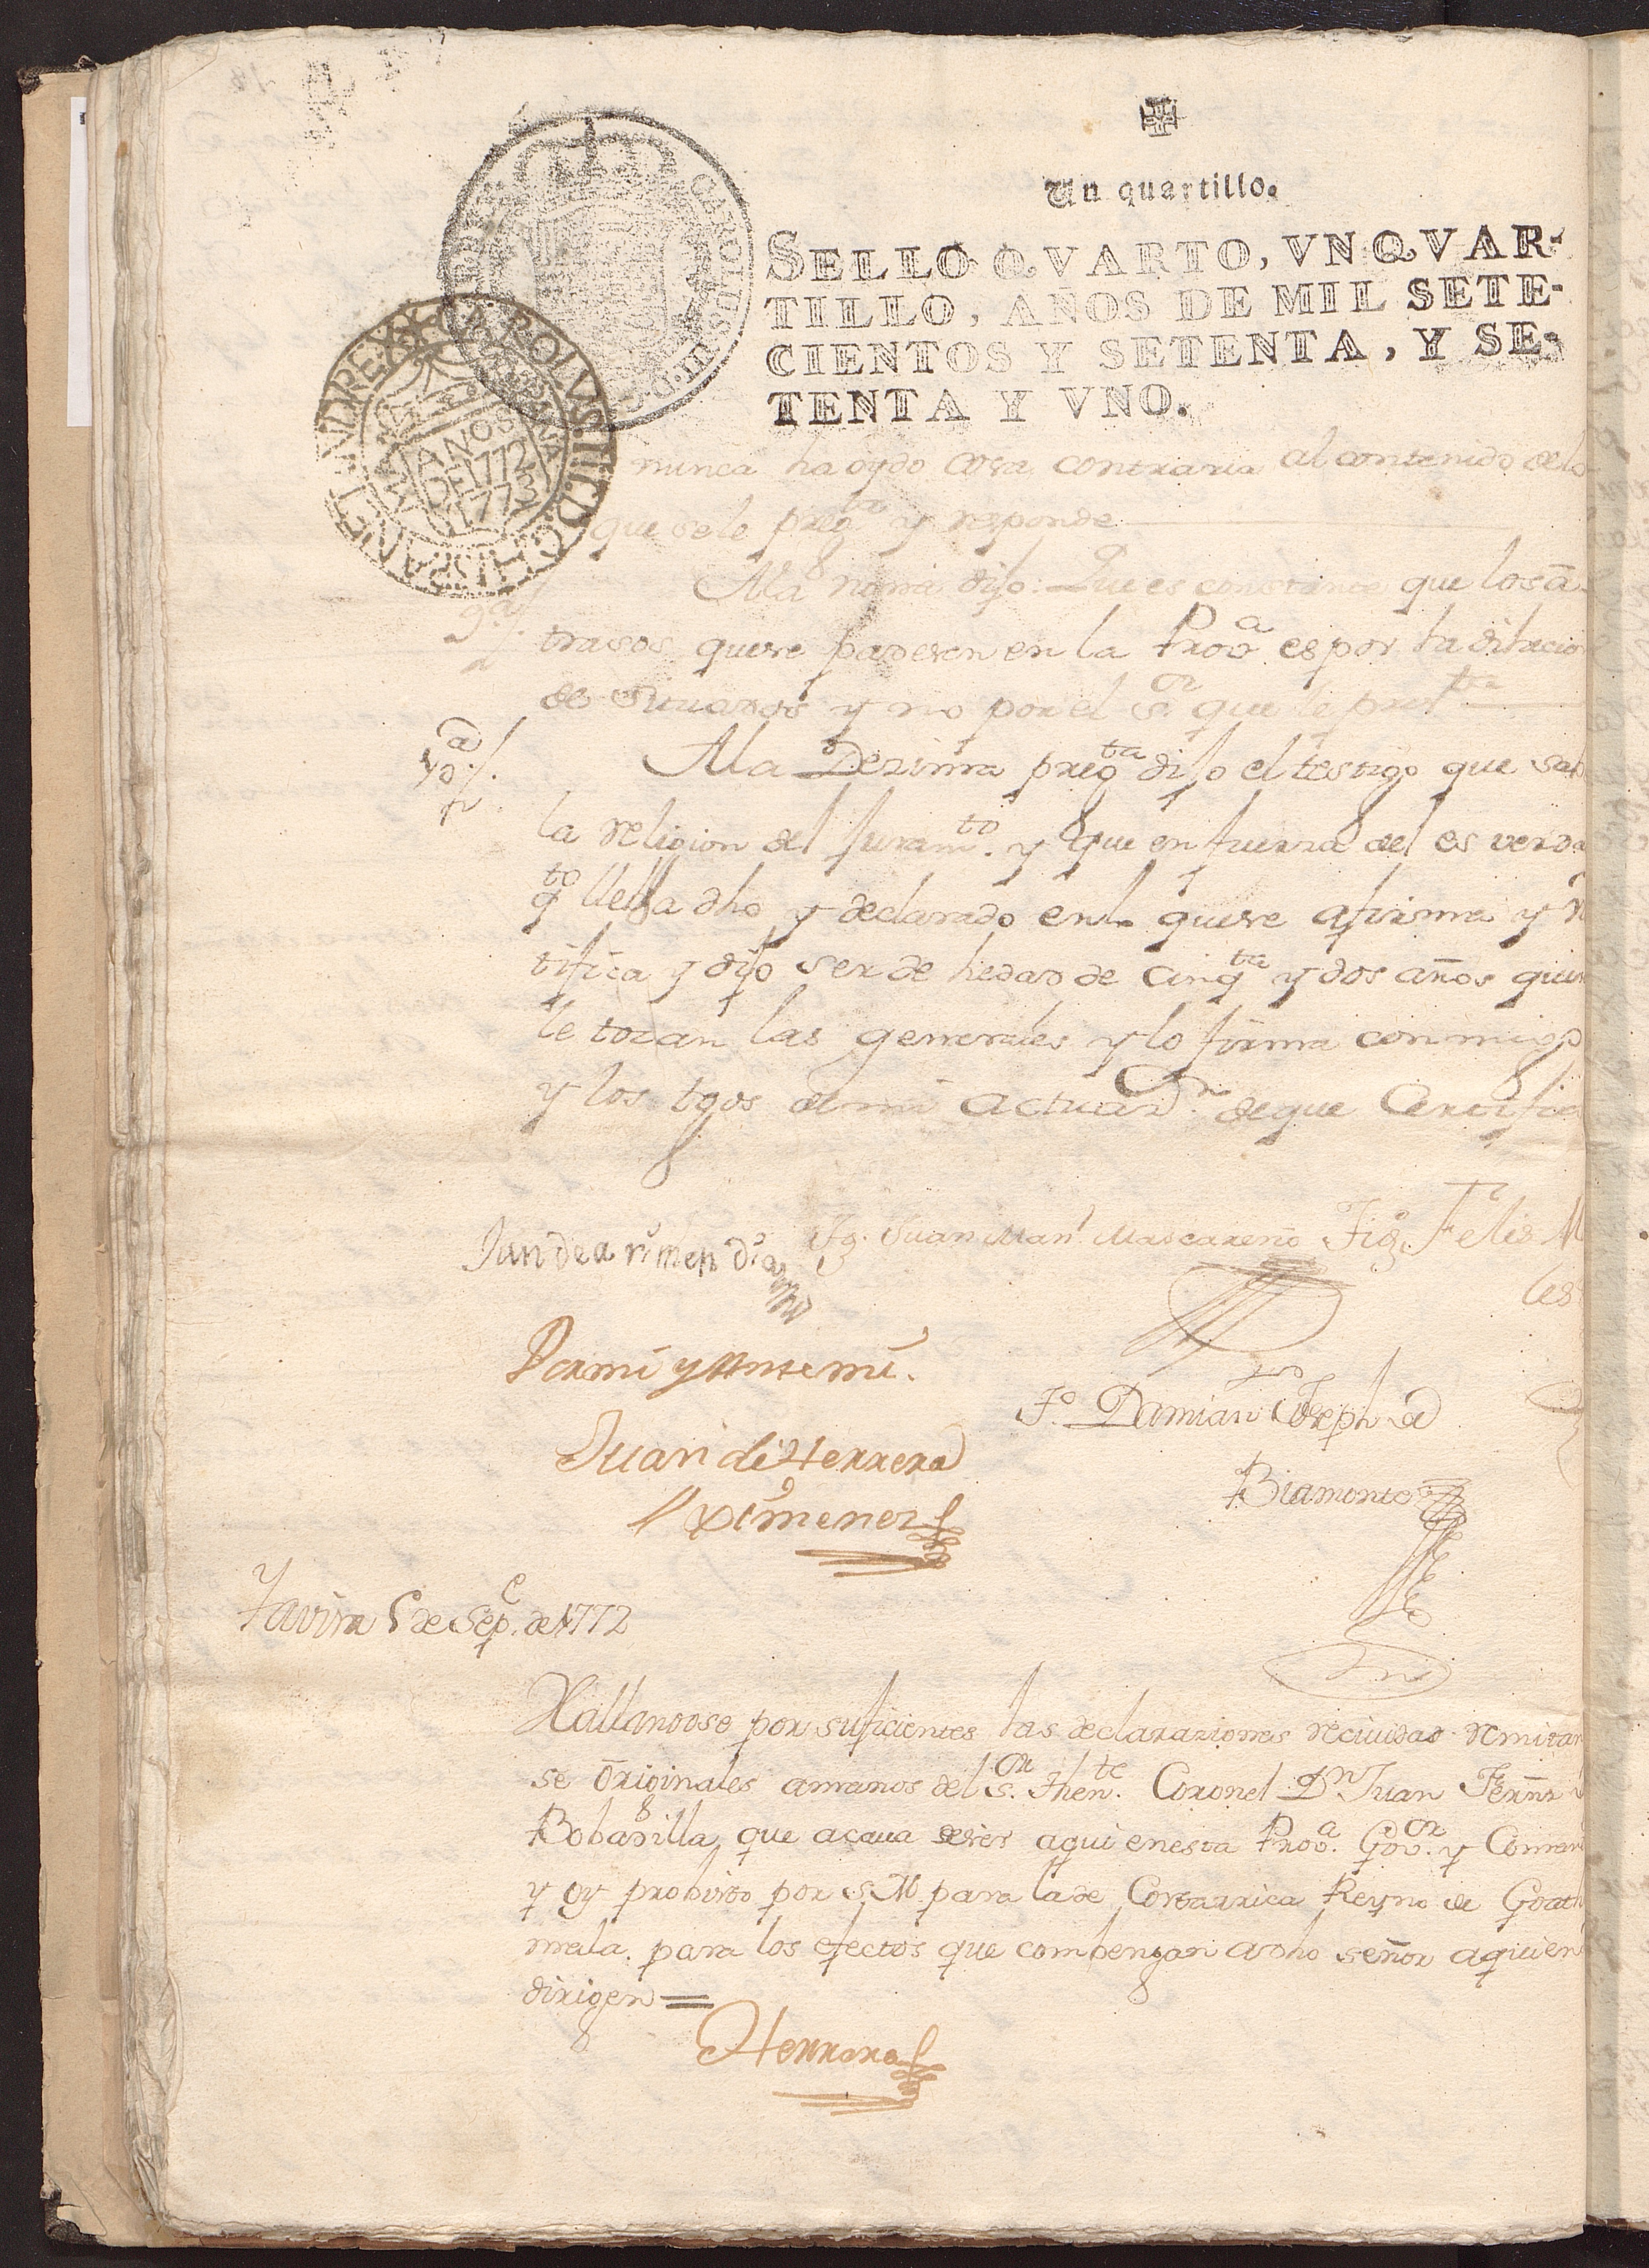 Un quartillo.
SELLO QVARTO, VN QVAR-
TILLO, AÑOS DE MIL SETE-
CIENTOS Y SETENTA, Y SE-
TENTA Y VNO.
CAROLVS.III.D.G.HISPAN.ET IND.REX
AÑOS
DE 1772
1773
nunca ha oydo cosa contraria al contenido de lo
que se le preg.ta y responde
9.a
A la nobena dijo: Que es constante que los a
trasos que se padesen en la Prov.a es por la dilacio
de Situados y no por el S.or que le pret.ta
10.a
A la Dezima preg.ta dijo el testigo que sab
la religion del juram.to y que en fuerza del es verda
q.to lleba dho y declarado en lo que se afirma y r
tifica y dijo ser de hedad de cinq.ta y dos años que n
le tocan las generales y lo firma con migo
y los tgos de mi actuaz.n de que Certifico
Jun de arimendia
Tg. Juan Man.l Mascareño
Tig. Felis M
les
Por mi y Ante mi.
T.o Damian Joseph de
Juan de Herrera
Biamonte
Ximenez
Tavira 5 de Sep.e de 1772
Hallandose por suficientes las declaraziones recividas remitan
se originales a manos del S.or Then.te Coronel D.n Juan Fernz
Bobadilla, que acava de ser aqui en esta Prov.a Gov.or y Coman
y oy probisto por S.M. para la de Costarrica Reyno de Goath
mala. para los efectos que combengan a dho señor a quien
dirigen=
Herrera